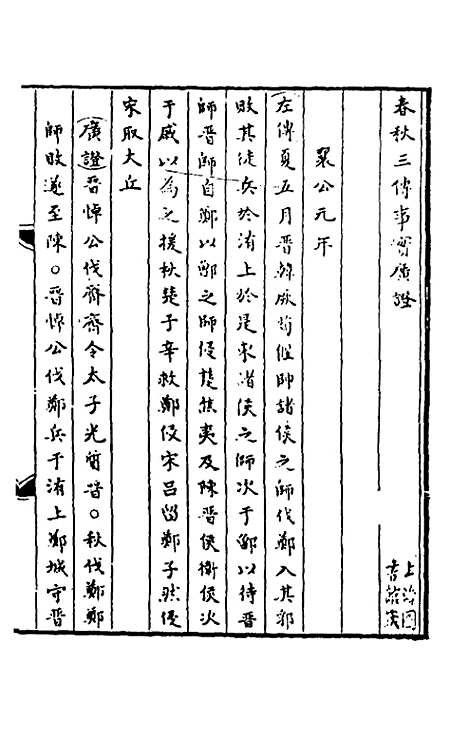 春秋三傳事實廣證
上海圖
書館藏
襄公元年
左傳夏五月晉韓厥荀偃帥諸侯之師伐鄭入其郛
敗其徒兵於洧上於是東諸侯之師次于鄫以待晉
師晉師自鄭以鄫之師侵楚焦夷及陳晉侯衛侯次
于戚以為之援秋楚子辛救鄭侵宋呂留鄭子然侵
宋取犬丘
廣證晉悼公伐齊齊令太子光質晉○秋伐鄭鄭
師敗遂至陳○晉悼公伐鄭兵于洧上鄭城守晉